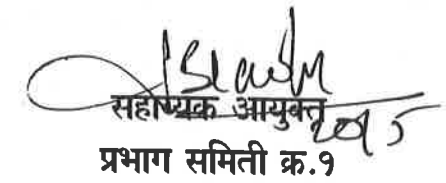 सहाय्यक आयुक्त
प्रभाग समिती क्र.१